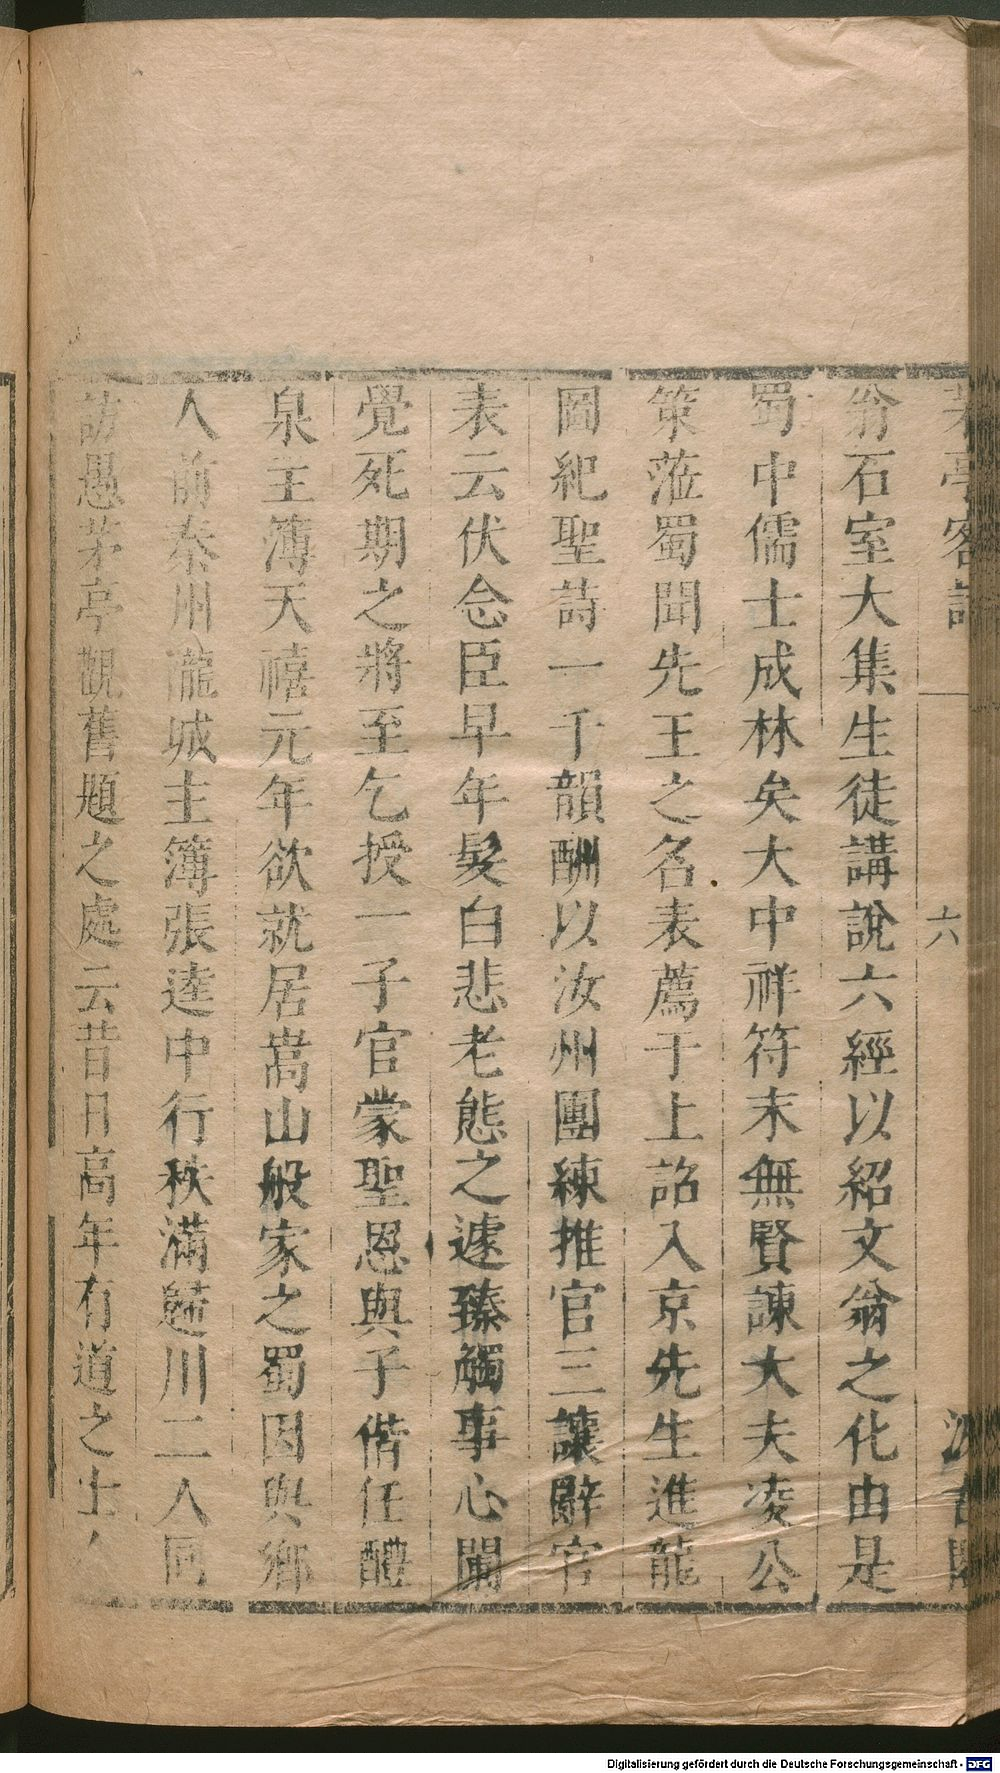 茅亭客話
六
汲古閣
翁石室大集生徒講說六經以紹文翁之化由是
蜀中儒士成林矣大中祥符末無賢諫大夫凌公
策蒞蜀聞先王之名表薦于上詔入京先生進龍
圖紀聖詩一千韻酬以汝州團練推官三讓辭官
表云伏念臣早年髮白悲老態之遽臻觸事心闌
覺死期之將至乞授一子官蒙聖恩與子偕任醴
泉主簿天禧元年欲就居嵩山般家之蜀因與鄉
人前秦州隴城主簿張逵中行秩滿歸川二人同
訪愚茅亭觀舊題之處云昔日高年有道之士人
Digitalisierung gefördert durch die Deutsche Forschungsgemeinschaft - DFG